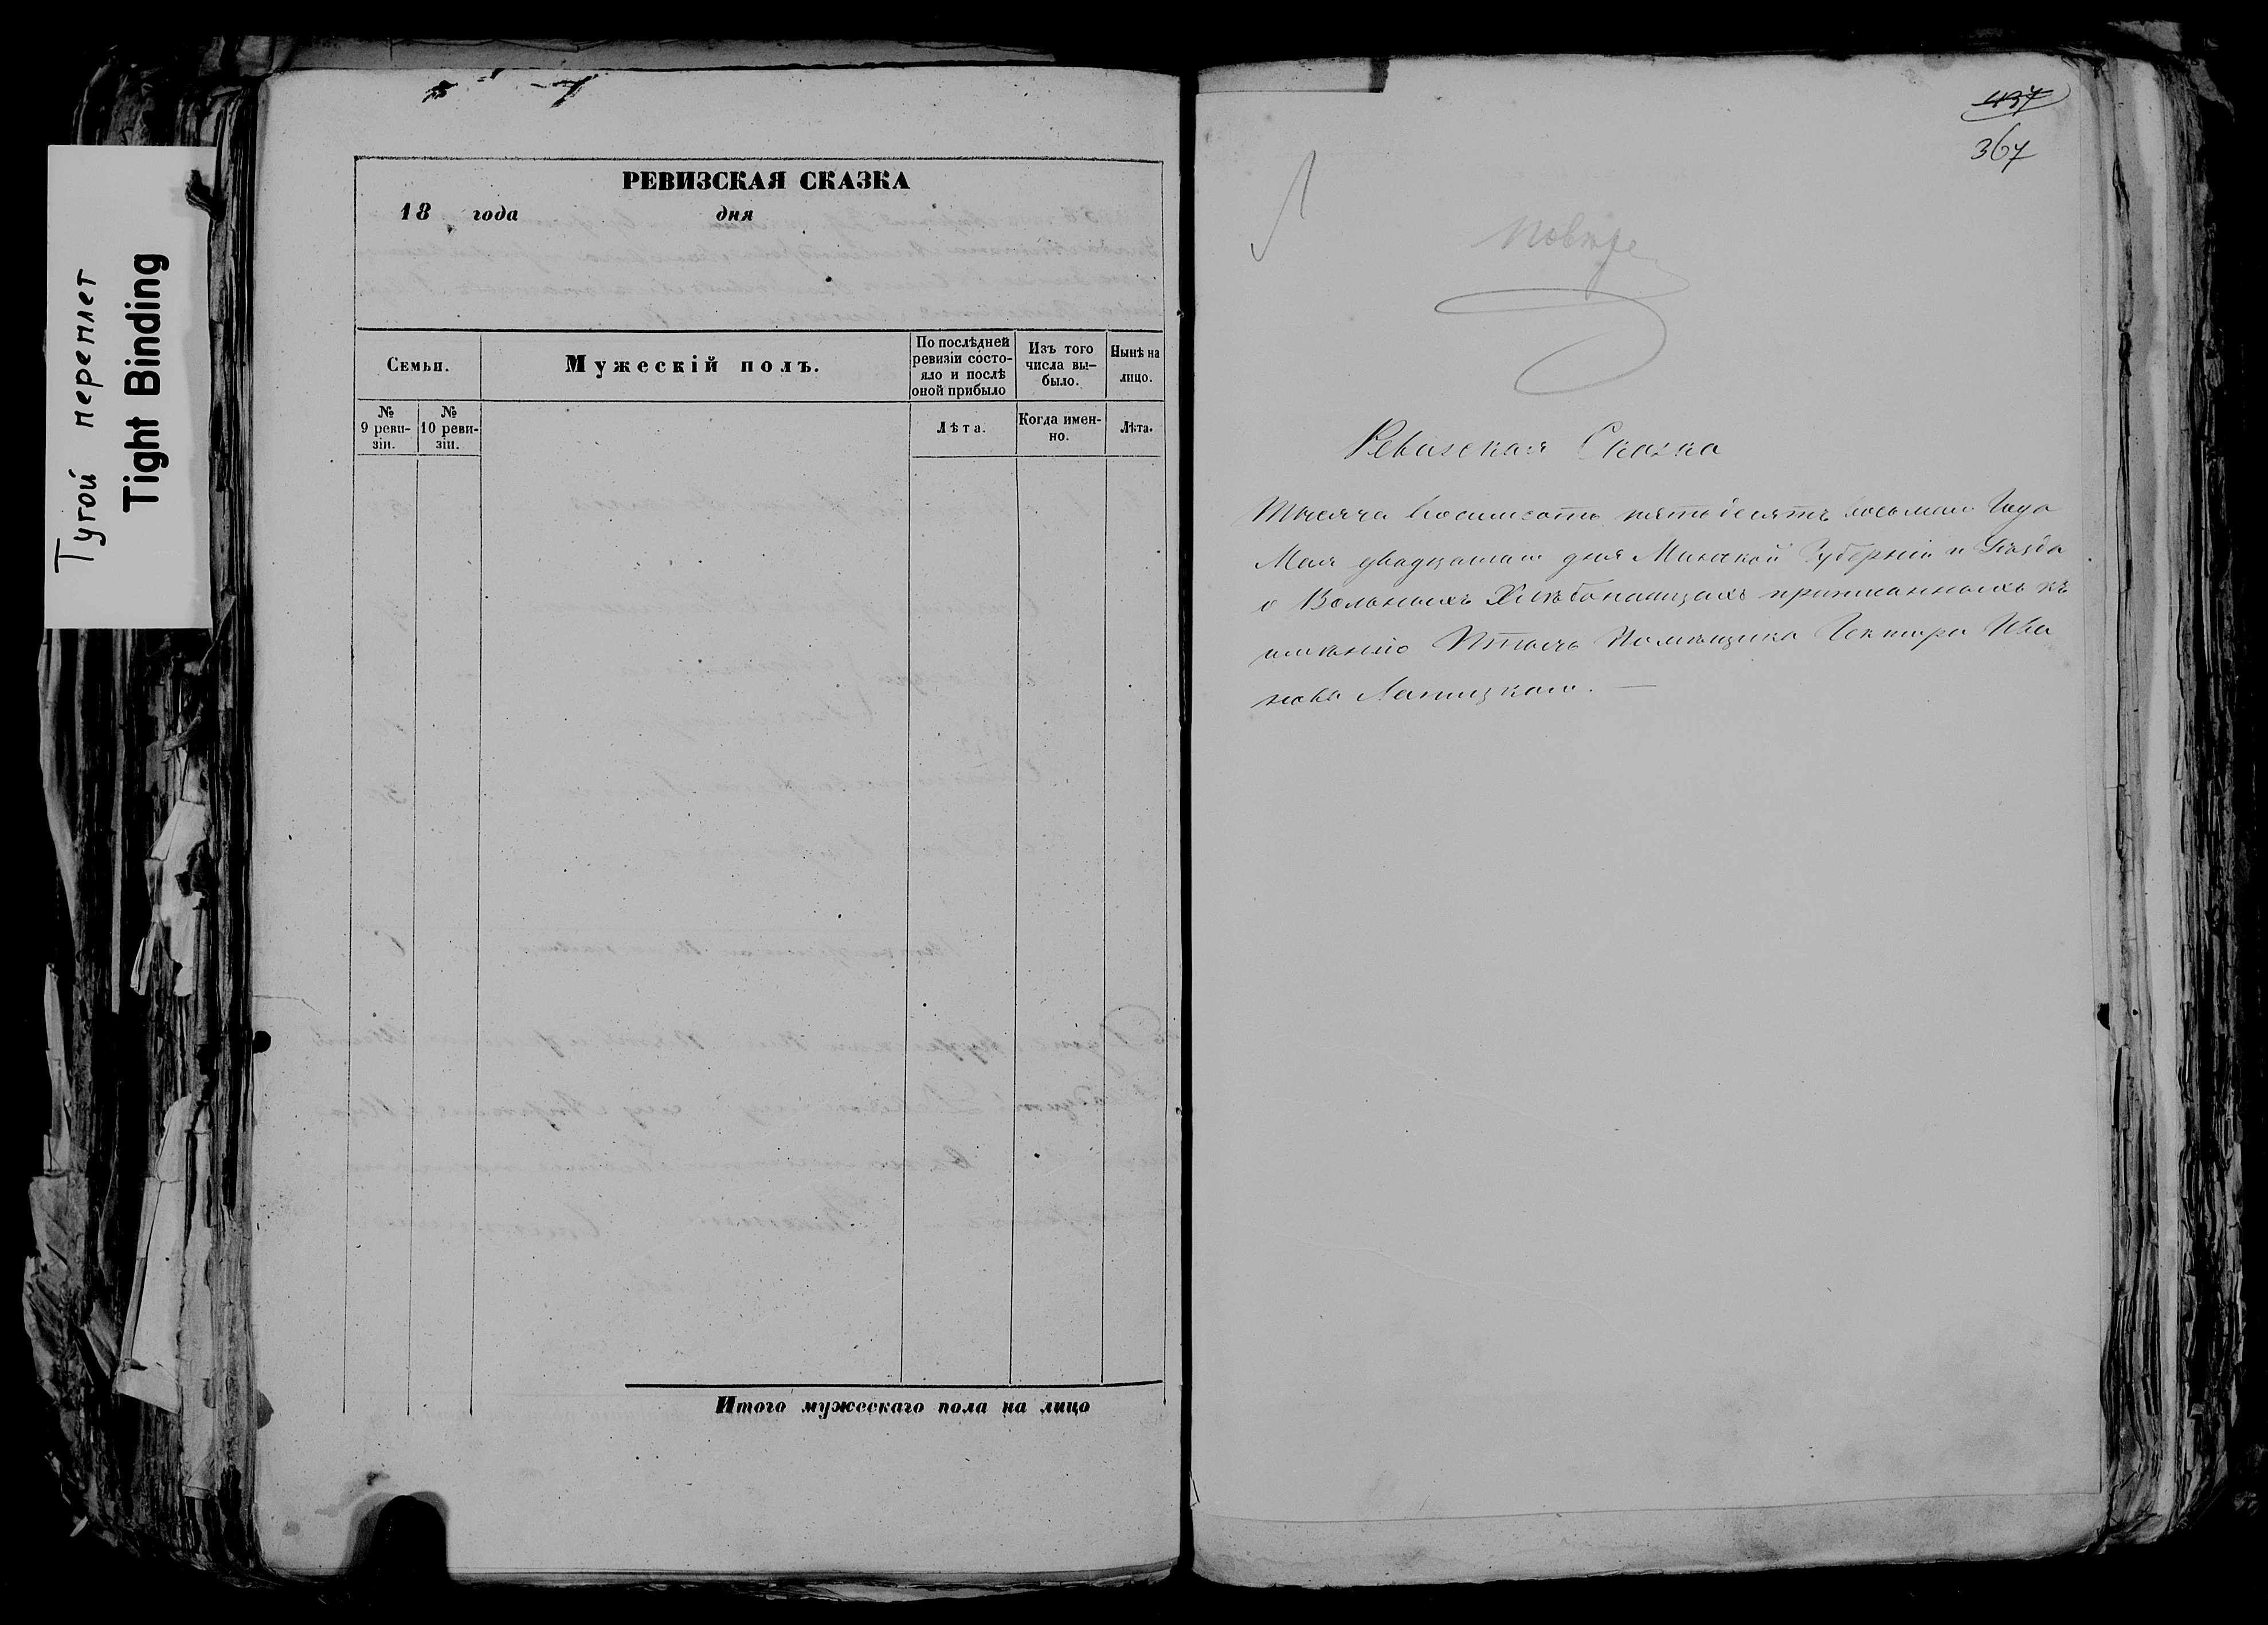 Тугой переплет
Tight Binding
РЕВИЗСКАЯ СКАЗКА
18 года дня
Семьи.
Мужескій полъ.
По послѣдней
ревизіи состо-
яло и послѣ
оной прибыло
Изъ того
числа вы-
было.
Нынѣ на
лицо.
№
9 реви-
зіи.
№
10 реви-
зіи.
Лѣта.
Когда имен-
но.
Лѣта.
Итого мужескаго пола на лицо
437
367
Ревизская Сказка
Тысяча восемсотъ пятьдесятъ восьмаго Года
Мая двадцатаго дня Минской Губерніи и Уѣзда
о Вольныхъ Хлѣбопашцахъ приписанныхъ къ
имѣнію Птычь Помѣщика Гектора Ива
нова Лапицкаго. —